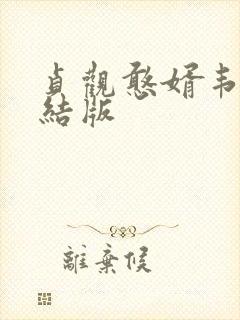 貞觀憨婿韦
結版
離棄侯